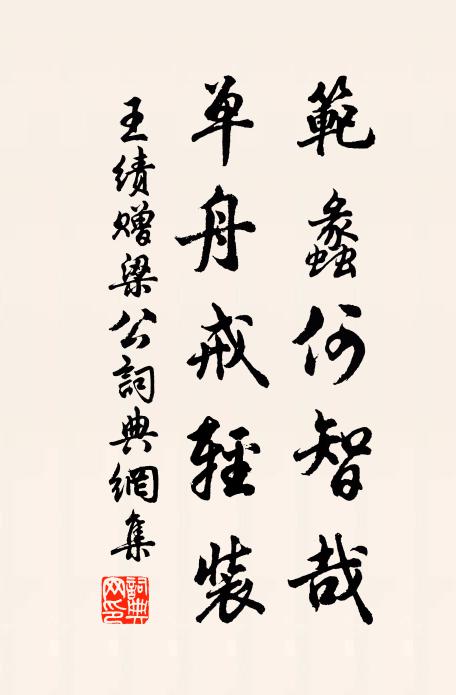 範蠡何智哉
单舟戒輕裝
王績贈梁公詞典網集
詞典網印